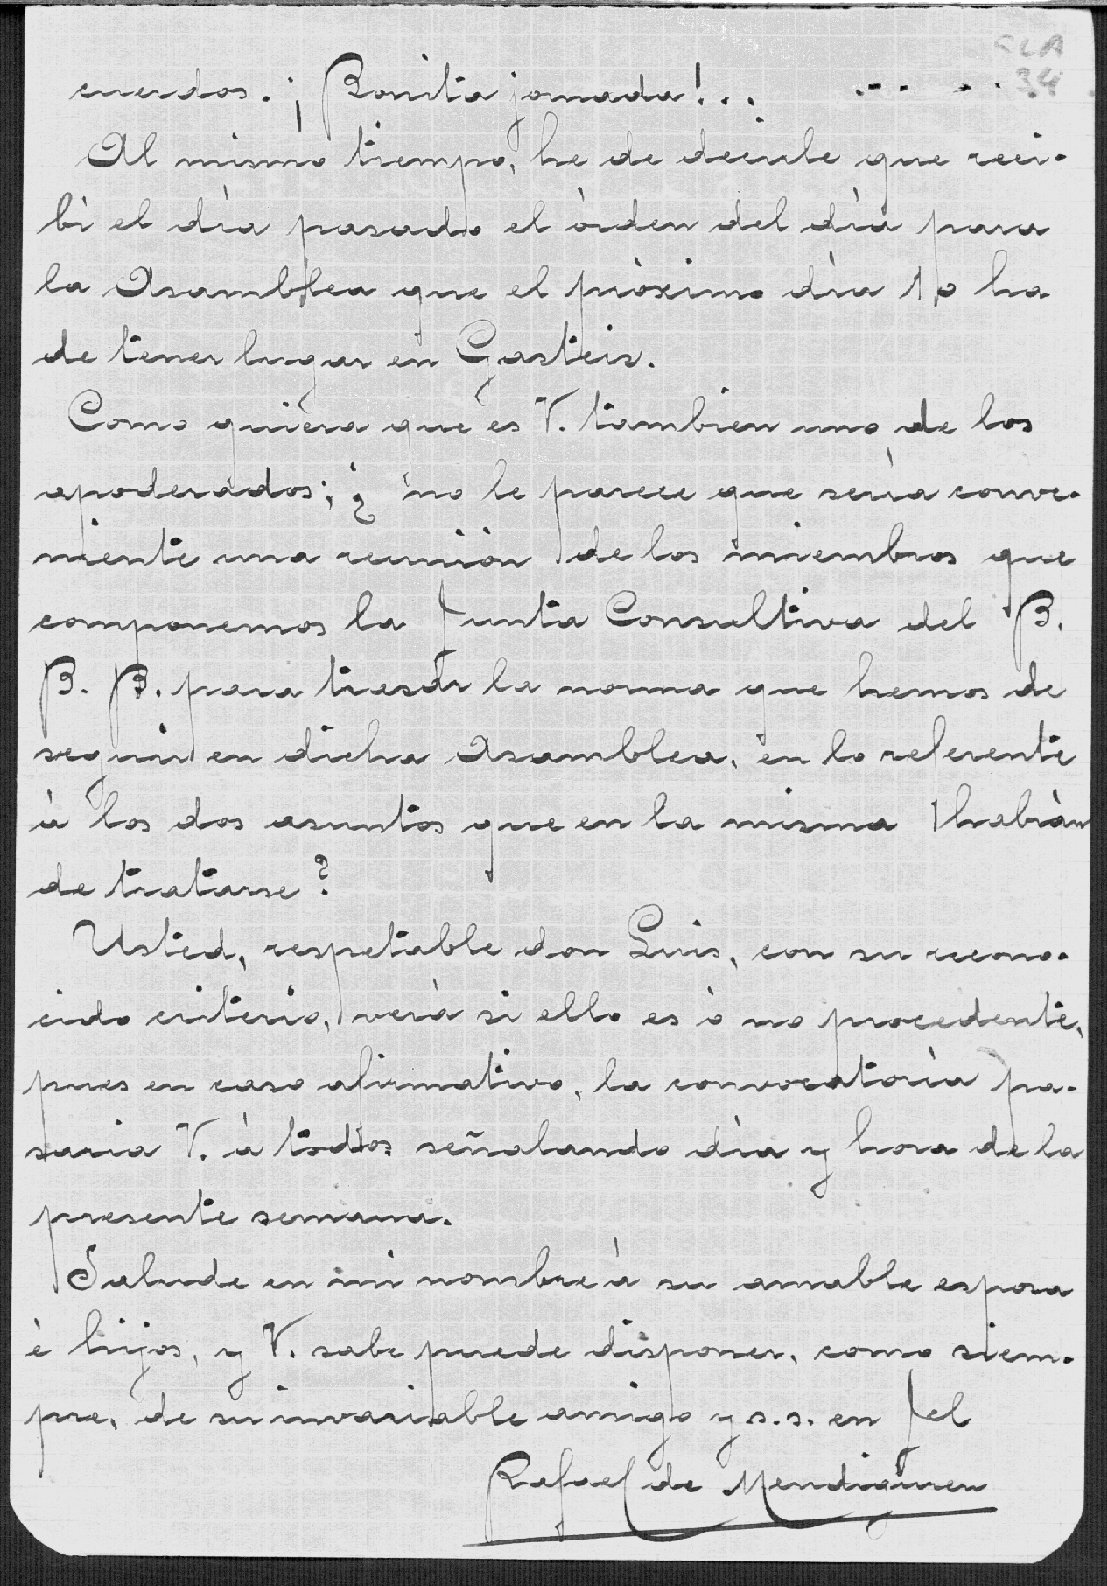 SLA
34
cuerdos. ¡Bonita jornada!...
Al mismo tiempo, he de decirle que reci-
bì el dìa pasado el òrden del dìa para
la Asamblea que el pròximo dìa 10 ha
de tener lugar en Gasteiz.
Como quiera que es V. tambien uno de los
apoderados; ¿no le parece que serìa conve-
niente una reuniòn de los miembros que
componemos la Junta Consultiva del B.
B. B. para trazar la norma que hemos de
seguir en dicha Asamblea, en lo referente
à los dos asuntos que en la misma habràn
de tratarse?
Usted, respetable don Luis, con su recono-
cido criterio, verà si ello es ò no procedente,
pues en caso afirmativo, la convocatorìa pa-
saria V. à todos señalando dìa y hora de la
presente semana.
Salude en mi nombre à su amable esposa
è hijos, y V. sabe puede disponer, como siem-
pre, de su invariable amigo y s.s. en Jel
Rafael de Mendiguren